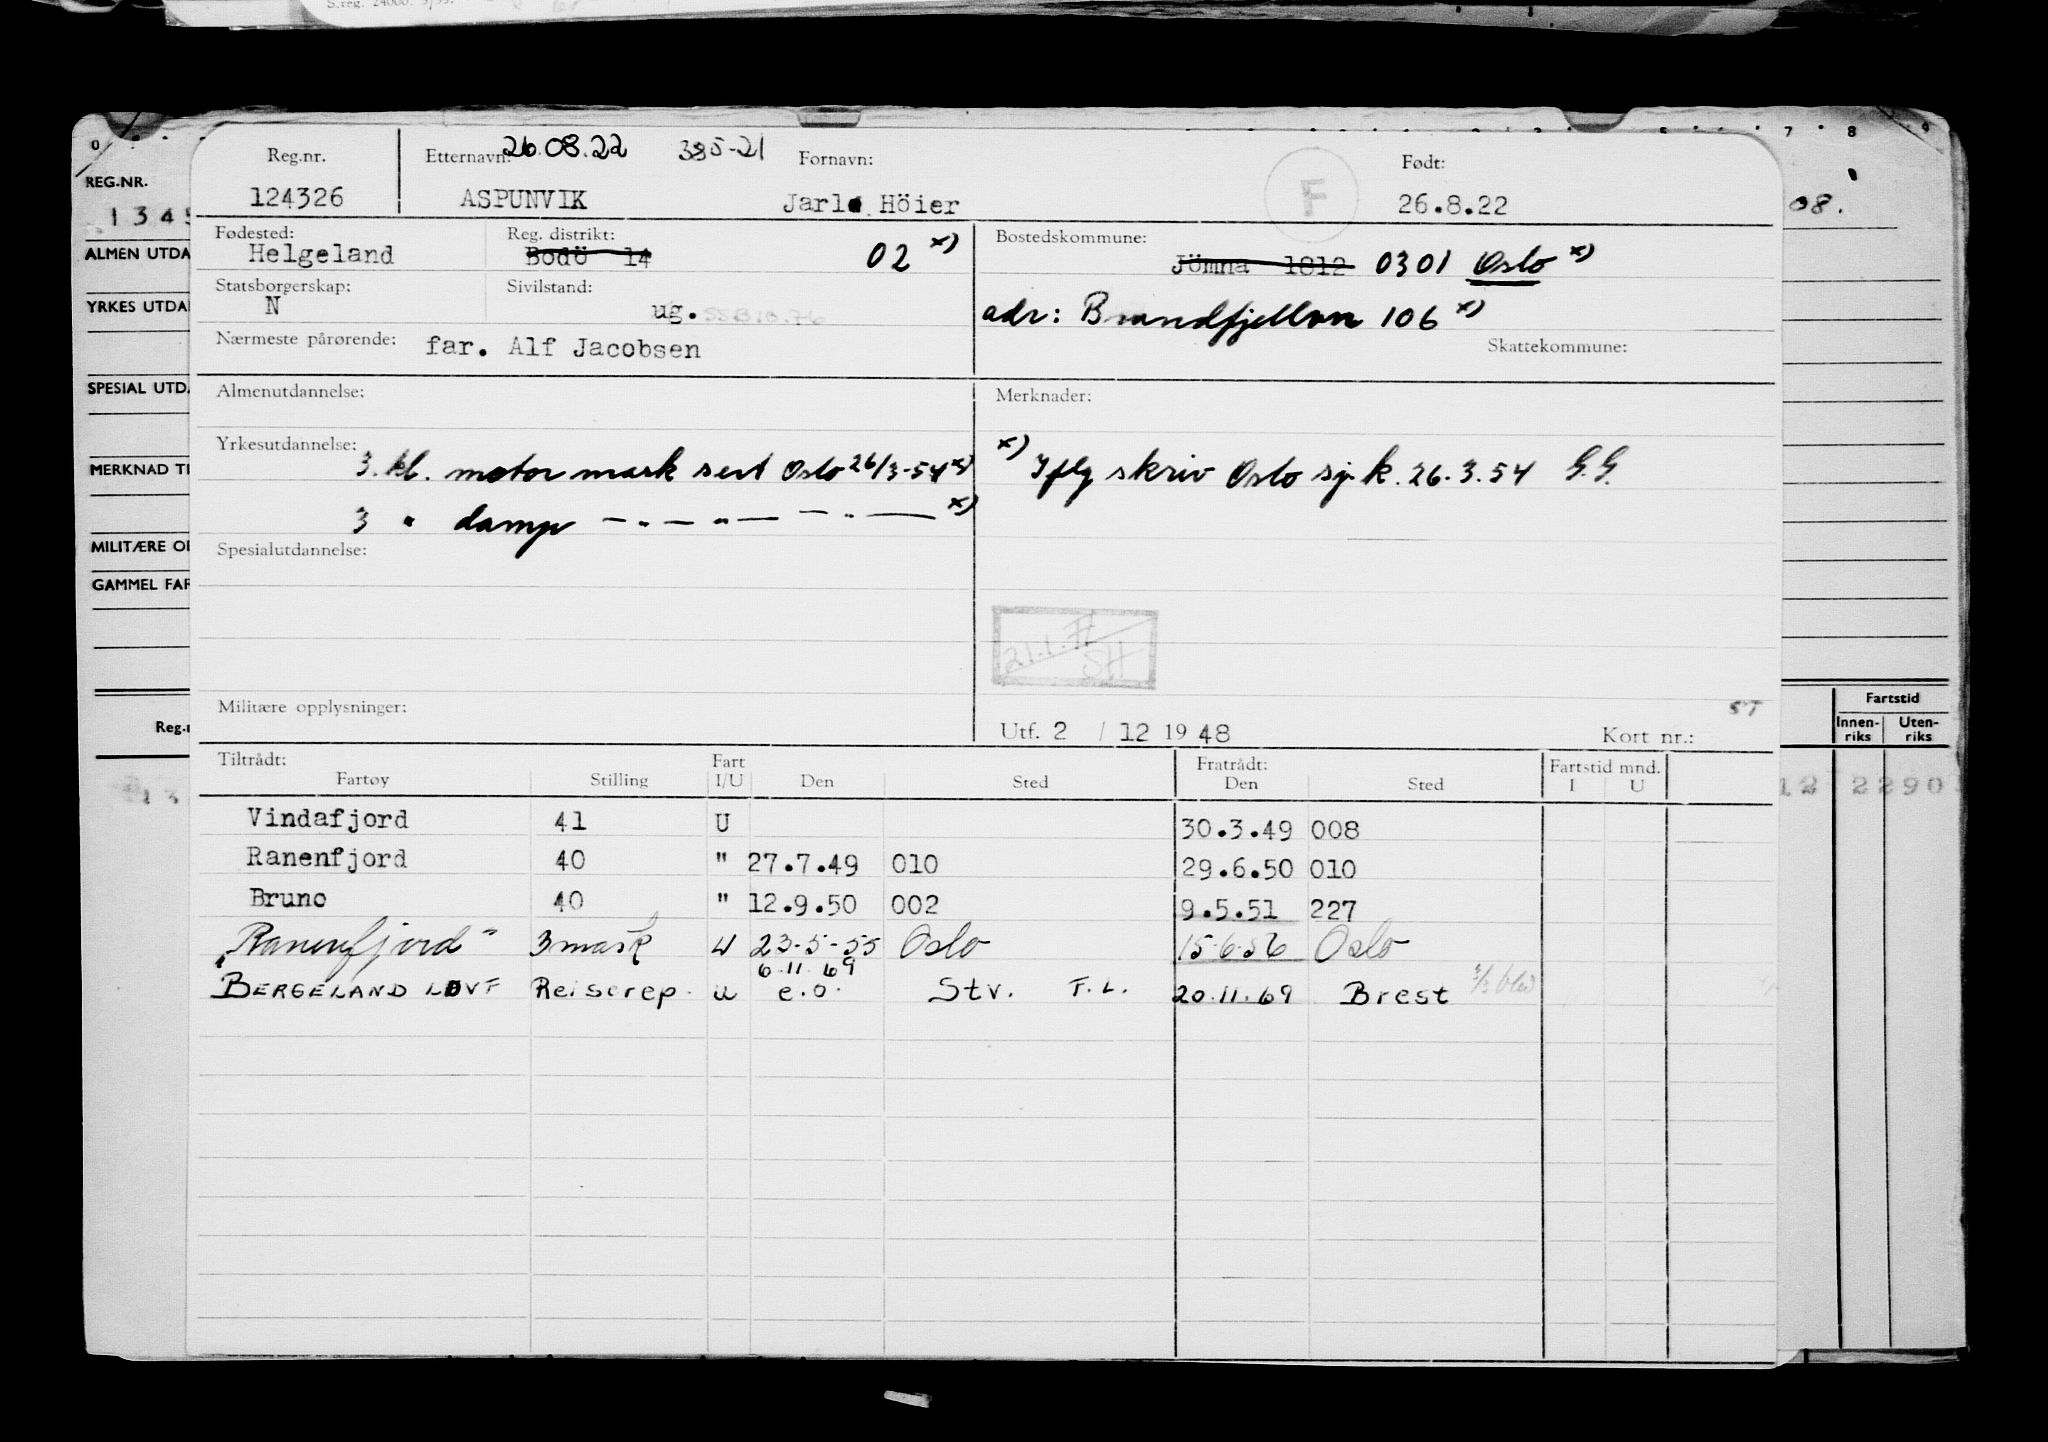 S.reg. 24000. 3/53.
0 7 8 9
REG.NR.
1345
08.
ALMEN UTDA
YRKES UTDA
SPESIAL UTD.
MERKNAD TI
MILITÆRE O
GAMMEL FAR
Reg.n
Fartstid
Innen-riks Uten-riks
13 12 2290
Reg.nr. Etternavn: 26.08.22 395-21 Fornavn: Født:
124326 ASPUNVIK Jarle Höier F 26.8.22
Fødested: Reg. distrikt: Bostedskommune:
Helgeland Bodö 14 02 x) Jömna 1812 0301 Oslo x)
Statsborgerskap: Sivilstand:
N ug. adr: Brandfjellvn 106 x)
Nærmeste pårørende: far. Alf Jacobsen Skattekommune:
Almenutdannelse: Merknader:
Yrkesutdannelse: 3. kl. motor mask sert Oslo 26/3-54 x)
x) Iflg skriv Oslo sj.k. 26.3.54 G.G.
3 " damp — " — " — " — x)
Spesialutdannelse:
21.1. SH
Militære opplysninger: ST
Utf. 2 / 12 19 48 Kort nr.:
Tiltrådt: Fart Fratrådt: Fartstid mnd.
Fartøy Stilling I/U Den Sted Den Sted I U
Vindafjord 41 U 30.3.49 008
Ranenfjord 40 " 27.7.49 010 29.6.50 010
Bruno 40 " 12.9.50 002 9.5.51 227
"Ranenfjord" 3 mask U 23-5-55 Oslo 15-6-56 Oslo
6.11.69
BERGELAND LØVF Reiserep. u e.o. Stv. F.L. 20.11.69 Brest